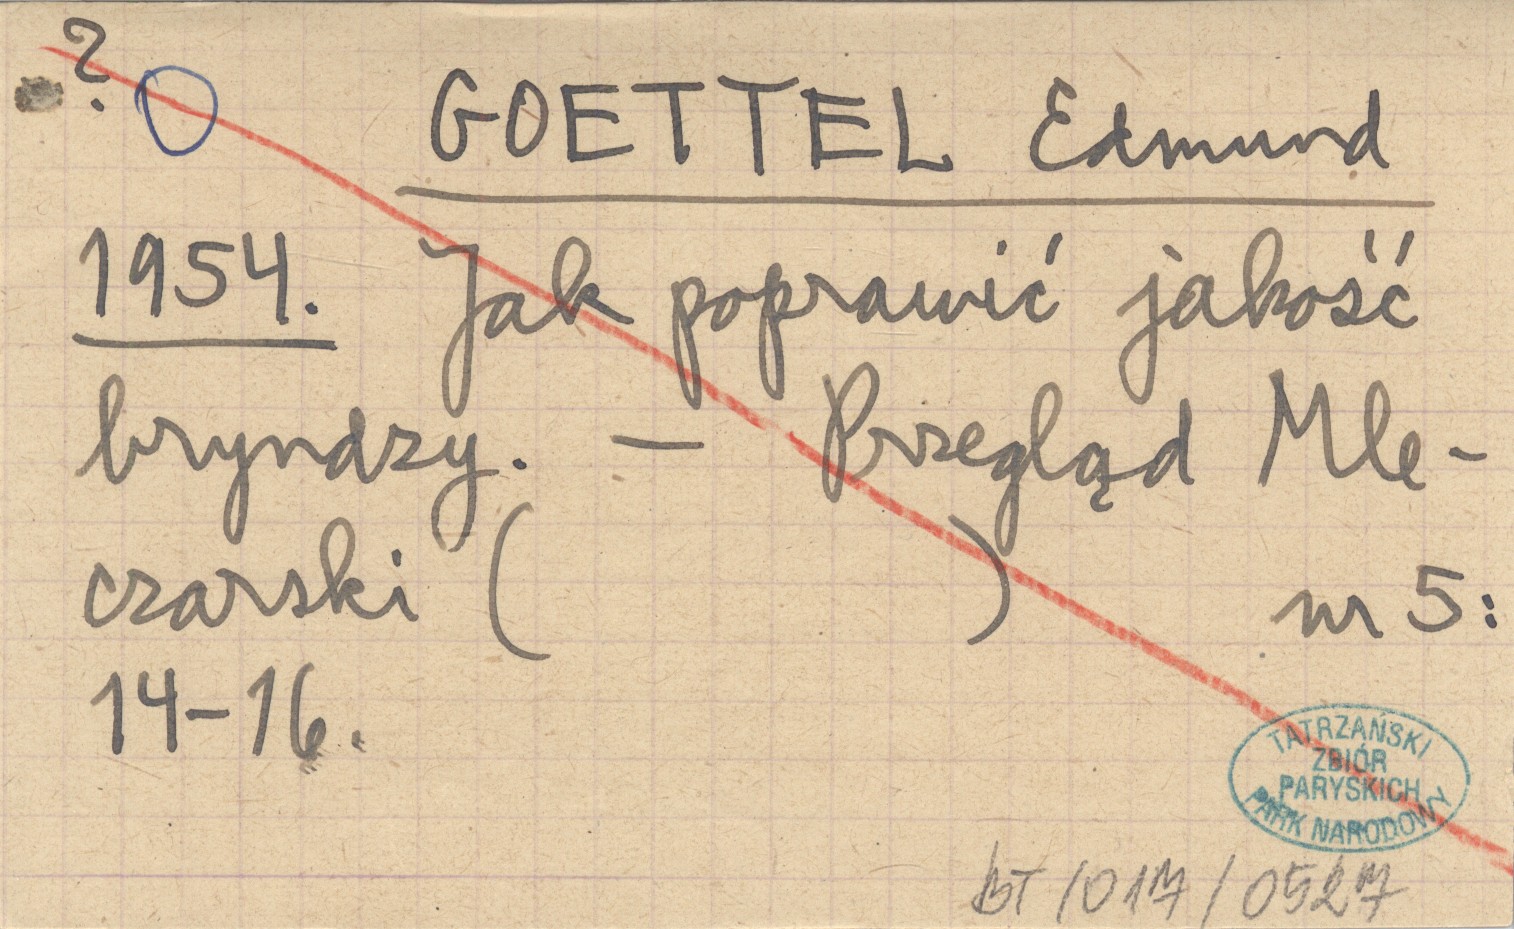 ?
GOETTEL Edmund
1954. Jak poprawić jakość
bryndzy. — Przegląd Mle-
czarski ( ) nr 5:
14-16.
TATRZAŃSKI
ZBIÓR
PARYSKICH
PARK NARODOWY
BT/017/0527